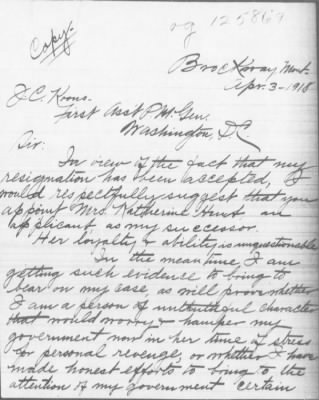 og 125867
Copy:
Brockway Mont.
Apr. 3 - 1918
J.C. Koons.
First Asst P.M. Gen.
Washington, D.C.
Sir:
In view of the fact that my
resignation has been accepted, I
would respectfully suggest that you
appoint Mrs. Katherine Hunt an
applicant, as my successor.
Her loyalty & ability is unquestionable
In the meantime, I am
getting such evidence to bring to
bear on my case, as will prove whether
I am a person of untruthful character
that would worry & hamper my
government now in her time of stress
for personal revenge, or whether I have
made honest efforts to bring to the
attention of my government certain